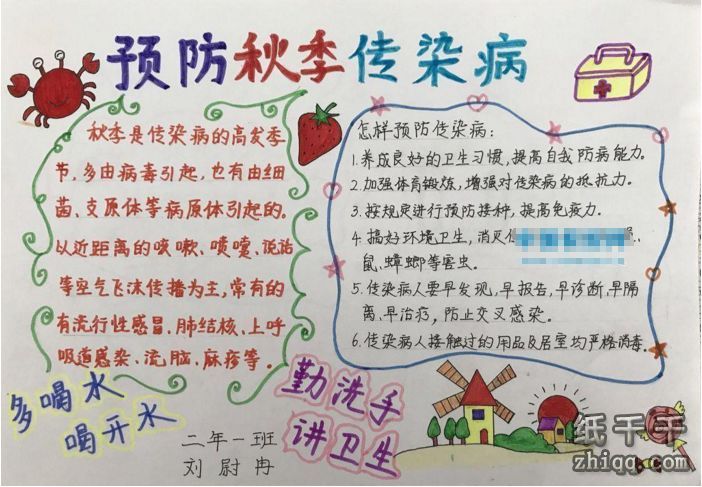 预防秋季传染病
秋季是传染病的高发季
节，多由病毒引起，也有由细
菌、支原体等病原体引起的。
以近距离的咳嗽、喷嚏、说话
等空气飞沫传播为主，常有的
有流行性感冒、肺结核、上呼
吸道感染、流脑、麻疹等。
怎样预防传染病：
1.养成良好的卫生习惯，提高自我防病能力。
2.加强体育锻炼，增强对传染病的抵抗力。
3.按规定进行预防接种，提高免疫力。
4.搞好环境卫生，消灭
鼠、蟑螂等害虫。
5.传染病人要早发现，早报告，早诊断，早隔
离、早治疗，防止交叉感染。
6.传染病人接触过的用品及居室均严格消毒。
多喝水
喝开水
勤洗手
讲卫生
二年一班
刘尉冉
纸千千
zhiqq.com